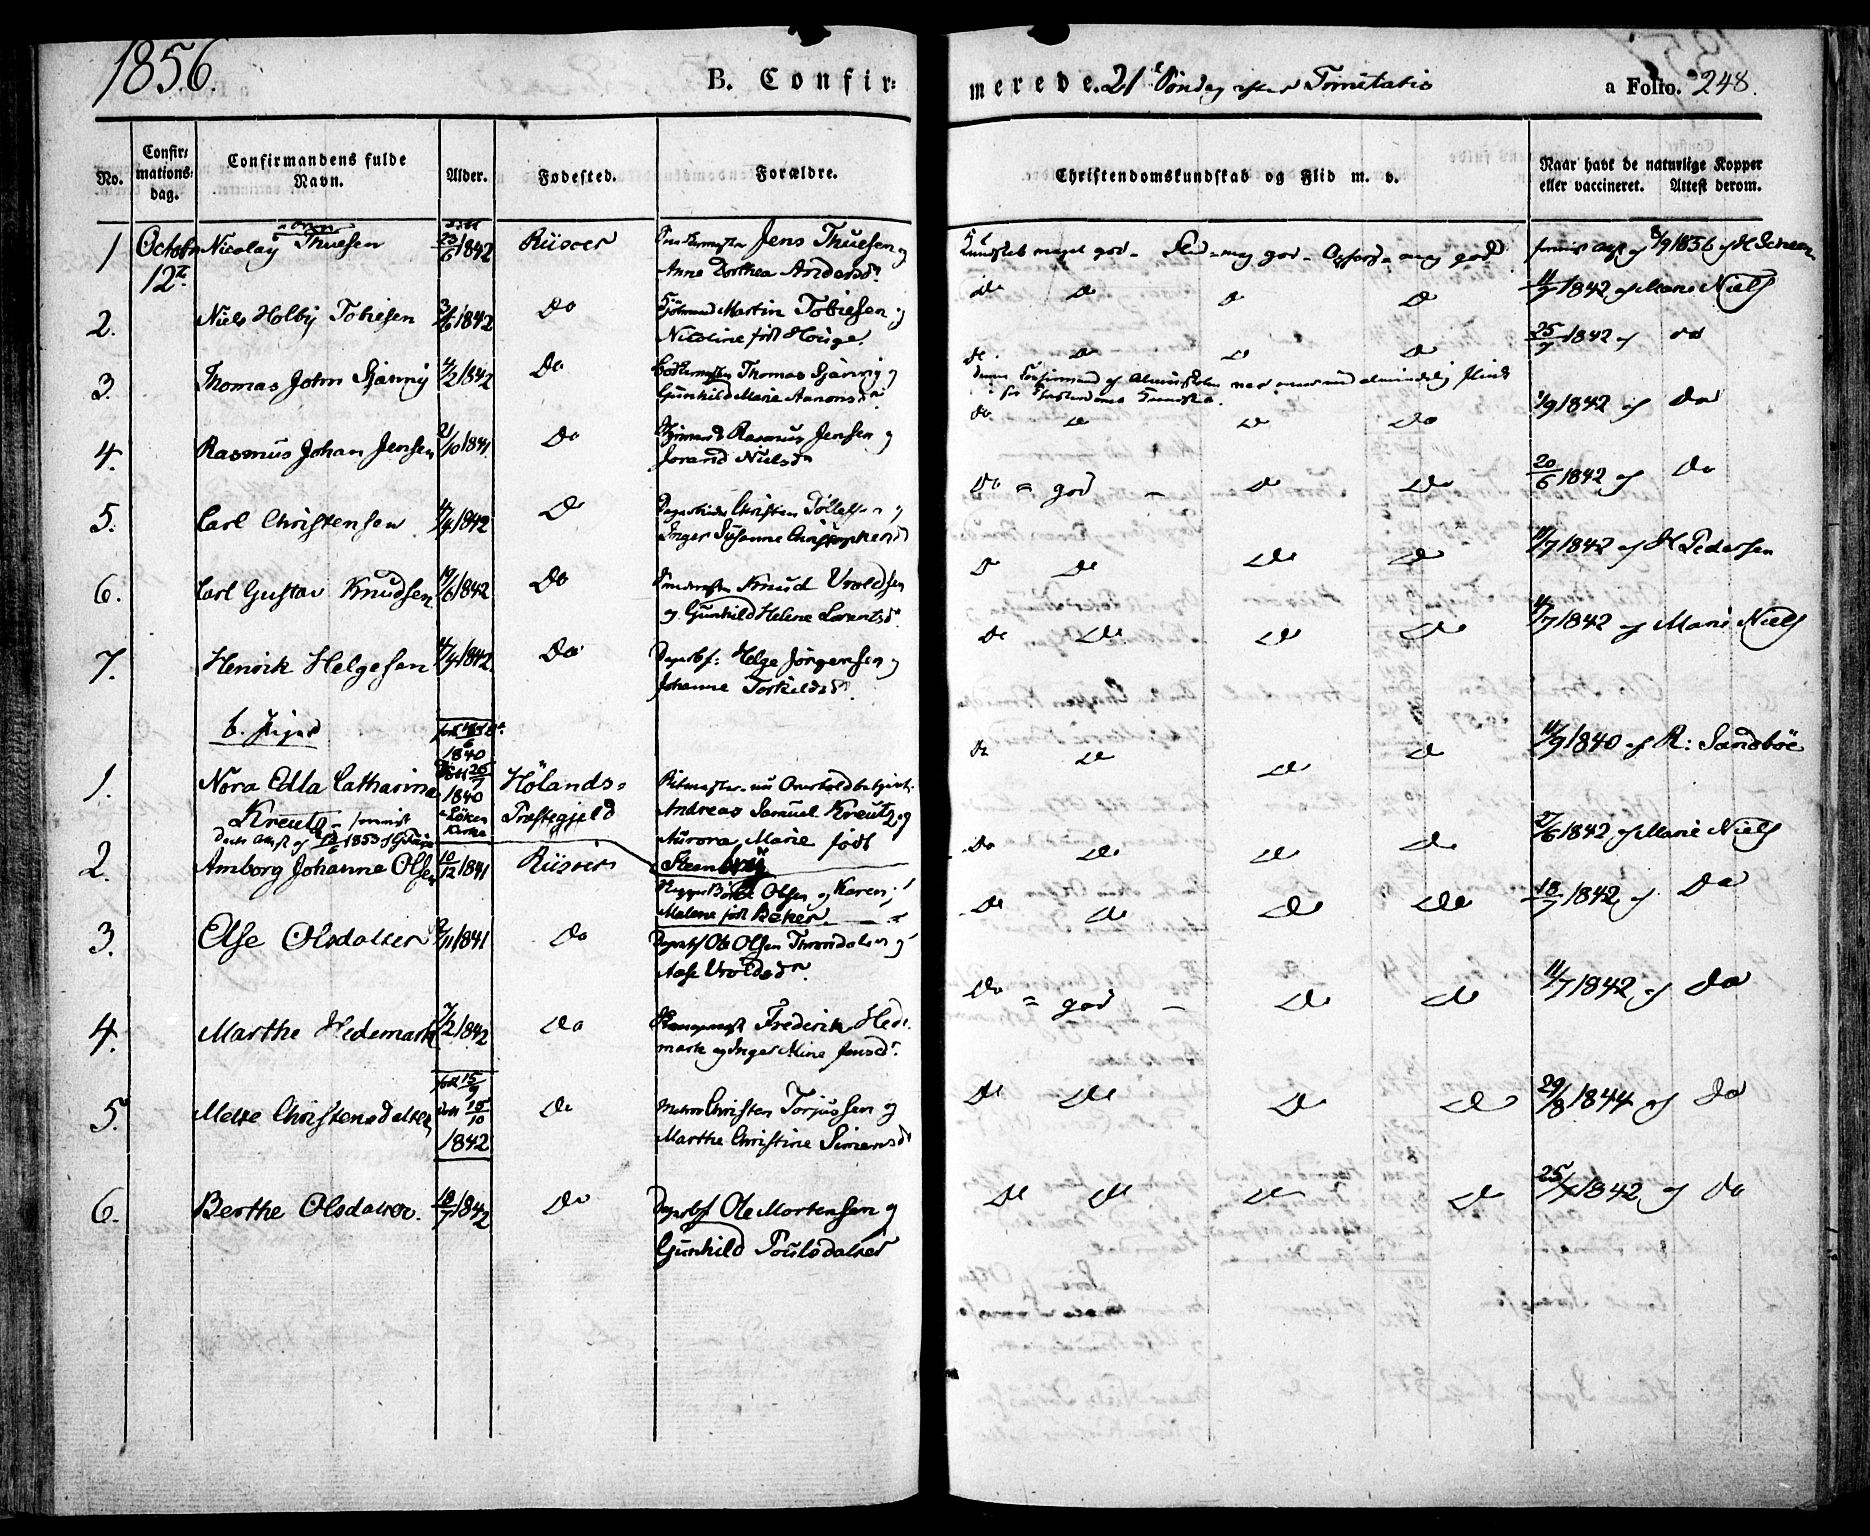 1856.
B. Confir=
merede. 21de Søndag efter Trinitatis
a Folio. 248.
No.
Confir=
mations=
dag.
Confirmandens fulde
Navn.
Alder.
Fødested.
Forældre.
Christendomskundskab og Flid m. v.
Naar havt de naturlige Kopper
eller vaccineret. Attest derom.
1 October Nicolay Thuesen 23/6 1842 Riisøer Jens Thuesen og
12te Anne Dorthea Andersdr
Kundskab meget god - Flid - meg god - Opførs - meg god 8/9 1856 af H Scheen
2. Niels Holby Tobiesen 3/6 1842 Do Martin Tobiesen og
Nicoline født Houge.
Do Do Do Do 11/7 1842 af Marie Niels
3. Thomas John Sjørvig 4/2 1842 Do Thomas Sjørvig og
Gunhild Marie Aanonsdr
Do. Do Do Do 25/7 1842 af do
4. Rasmus Johan Jensen 21/10 1841 Do Rasmus Jensen og
Jorand Nielsdr
Do Do Do Do 1/9 1842 af Do
5. Carl Christensen 4/4 1842 Do Christen Tollefsen og
Inger Susanne Christophersdr
Do = god - Do Do 20/6 1842 af Do
6. Carl Gustav Knudsen 19/6 1842 Do Knud Vroldsen
og Gunhild Helene Lorentsdr.
Do Do Do Do 11/7 1842 af H Pedersen
7. Henrik Helgesen 4/4 1842 Do Dagarbf: Helge Jörgensen og
Johanne Torkildsdr.
Do Do Do Do 4/7 1842 af Marie Niels
b. Piger
1. Nora Edla Catharina
Kreutz
1840
døbt 26/7
1840
Löken
Kirke
Hölands=
Præstegjeld
Andreas Samuel Kreutz og
Aurora Marie født
Steenberg
Do Do Do Do 11/9 1840 af R: Sandbøe
2. Amborg Johanne Olsen 10/12 1841 Riisøer Olsen og Karen
Malene født Beker
Do Do Do Do 27/6 1842 af Marie Niels
3. Else Olsdatter 2/11 1841 Do Dagarbf Ole Olsen og
Aase Vroldsdr.
Do Do Do Do 18/7 1842 af Do
4. Marthe Hedemark 7/2 1842 Do Frederik Hede
mark og Inger Mine Jensdr.
Do = god - Do Do 11/7 1842 af Do
5. Mette Christensdatter
født 15/9
døbt 15/10
1842
Do Christen Torjussen og
Marthe Christine Simensdr
Do Do Do Do 29/8 1844 af do
6. Berthe Olsdatter. 18/7 1842 Do Dagarbf Ole Mortensen og
Gunhild Poulsdatter
Do Do Do Do 25/7 1842 af Do